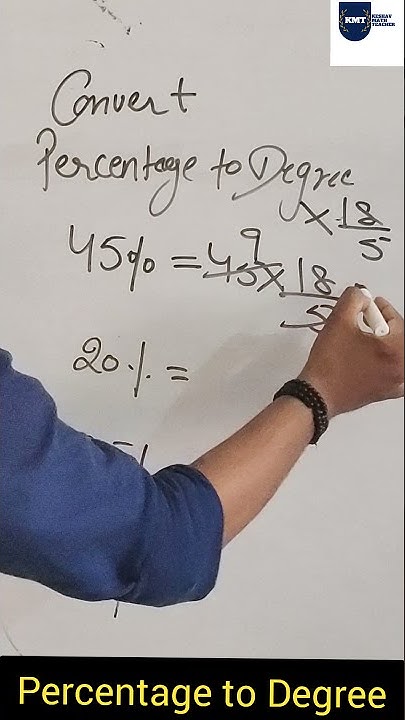 KMT KESHAV
MATH
TEACHER
Convert
Percentage to Degree
× 18/5
9
45% = 45 × 18/5
20% =
%
Percentage to Degree